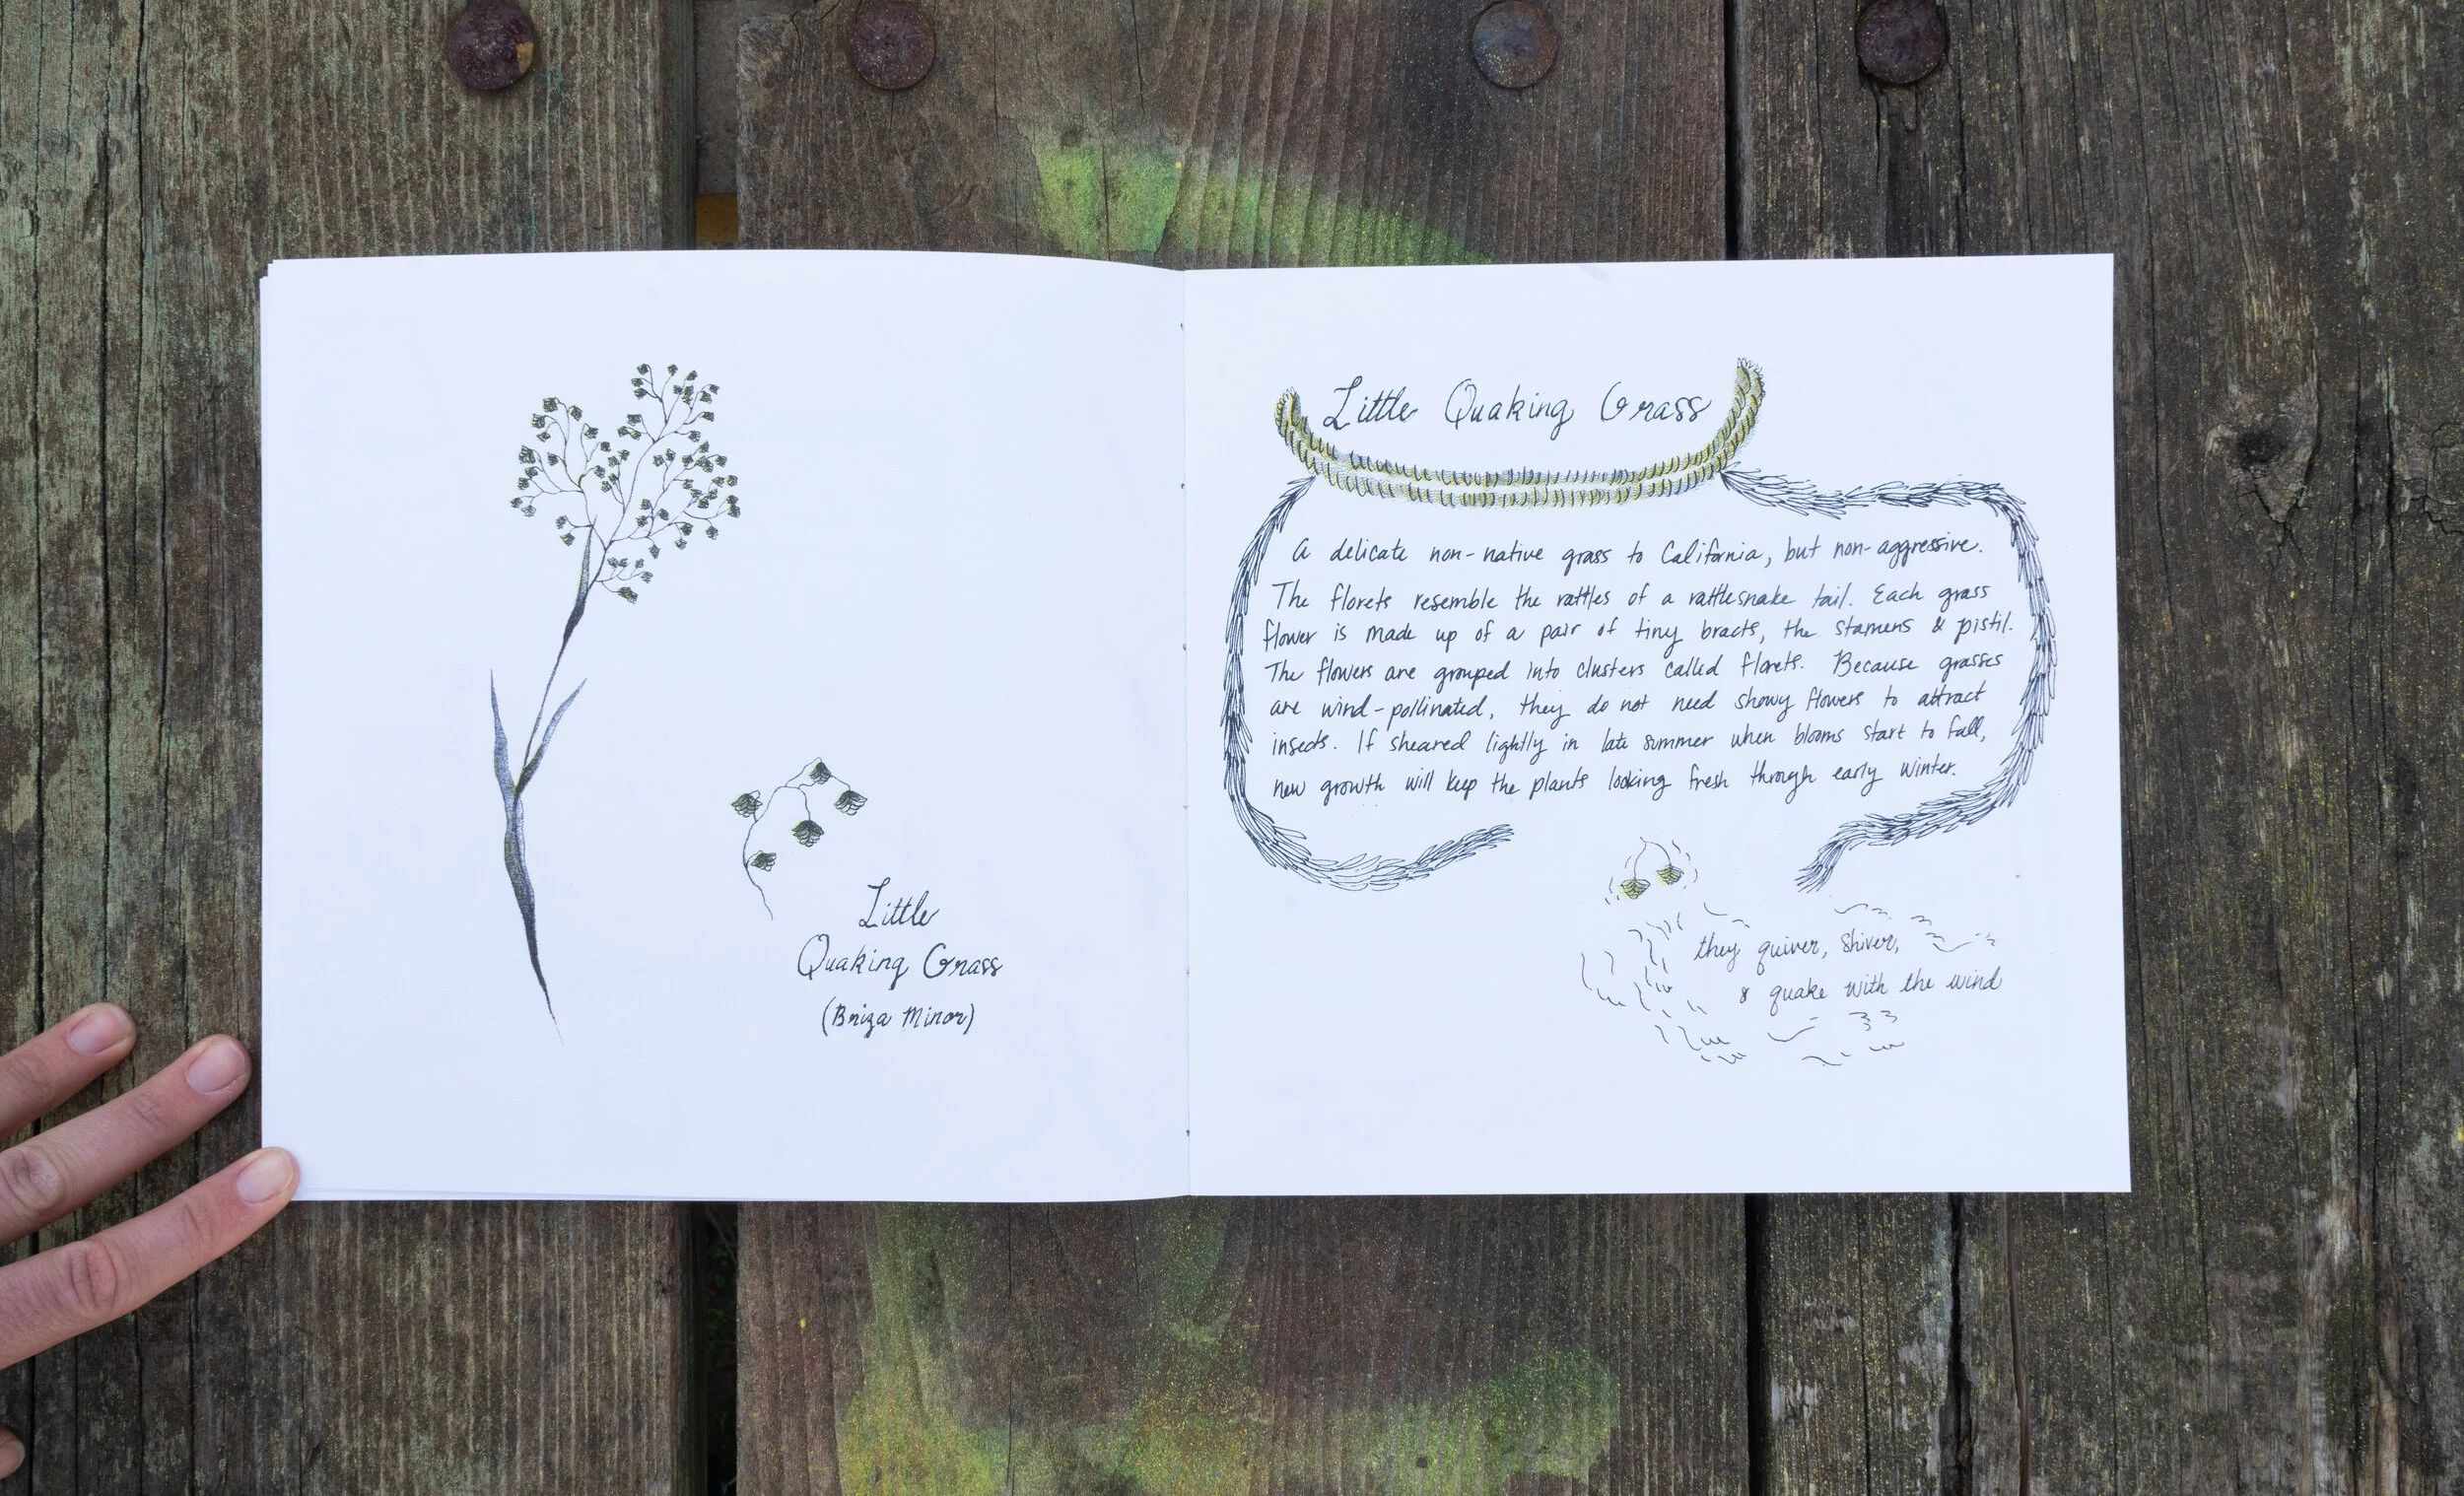 Little
Quaking Grass
(Briza Minor)
Little Quaking Grass
A delicate non-native grass to California, but non-aggressive.
The florets resemble the rattles of a rattlesnake tail. Each grass
flower is made up of a pair of tiny bracts, the stamens & pistil.
The flowers are grouped into clusters called florets. Because grasses
are wind-pollinated, they do not need showy flowers to attract
insects. If sheared lightly in late summer when blooms start to fall,
new growth will keep the plants looking fresh through early winter.
they quiver, shiver,
& quake with the wind